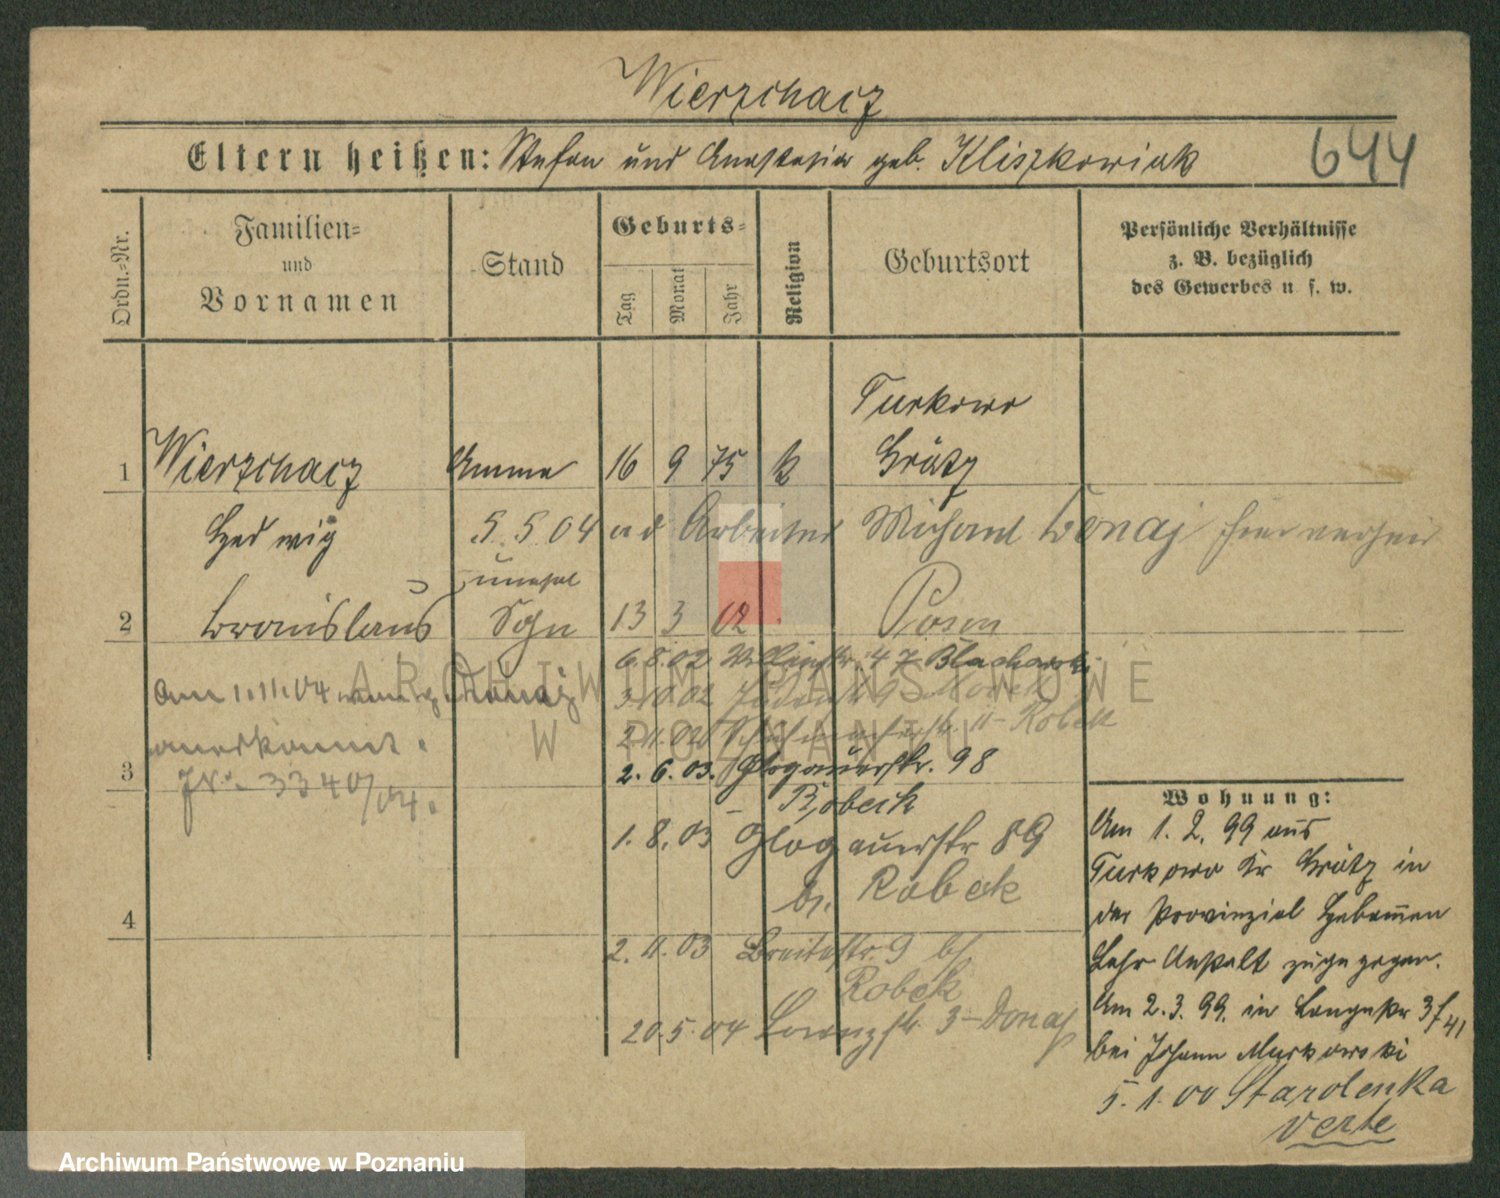 Wierzchacz
Eltern heißen: Stefan und Anastasia geb. Kliszkowiak
644
Ordn.-Nr.
Familien-
und
Vornamen
Stand
Geburts-
Tag
Monat
Jahr
Religion
Geburtsort
Persönliche Verhältnisse
z. B. bezüglich
des Gewerbes u. s. w.
Turkowo
1 Wierzchacz Amme 16 9 75 k Grätz
Hedwig 5.5.04 Arbeiter Michael Donaj hier
unehel
2 Bronislaus Sohn 13 3 02 Posen
6.8.02 47 Blacharski
Am 1.11.04 Donaj
3.10.02
anerkannt.
2.11.02 11 - Robek
3
2.6.03. Glogauerstr. 98
JN: 3340/04.
- Robeck
1.8.03 Glogauerstr 89
b. Robeck
4
2.11.03 Breitestr. 9 b/
Robek
20.5.04 Lorenzstr. 3 - Donaj
Wohnung:
Am 1.2.99 aus
Turkowo Kr Grätz in
der Provinzial Hebammen
Lehr Anstalt zugezogen.
Am 2.3.99. in Langestr 3
bei Johann Murkowski
5.1.00 Starolenka
verte
ARCHIWUM PAŃSTWOWE
W POZNANIU
Archiwum Państwowe w Poznaniu